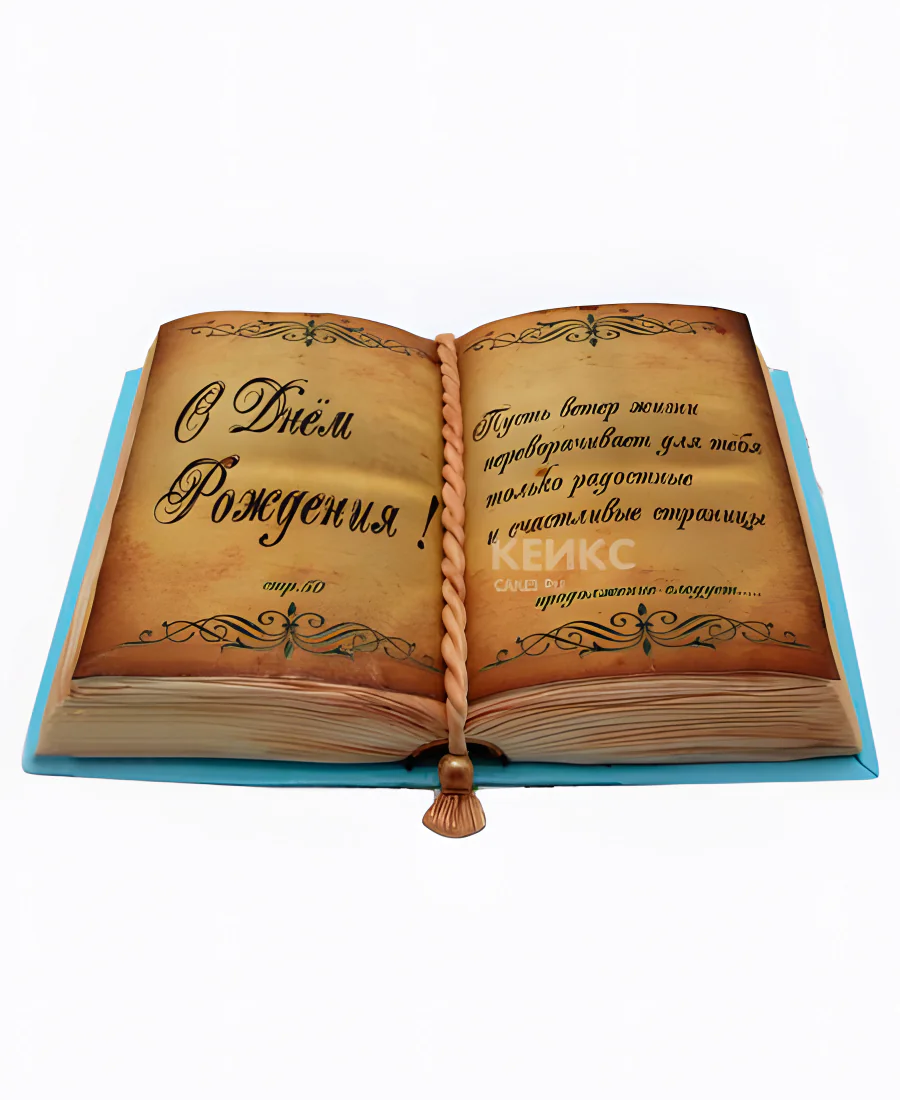 С Днём
Рождения !
стр.50
Пусть ветер жизни
переворачивает для тебя
только радостные
и счастливые страницы
продолжение следует.....
КЕИКС